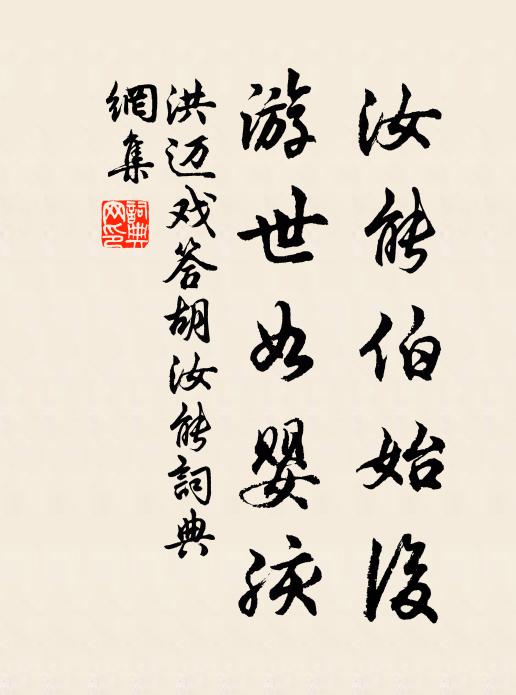 汝能伯始後
游世如嬰孩
洪迈戏答胡汝能詞典
網集
詞典網印